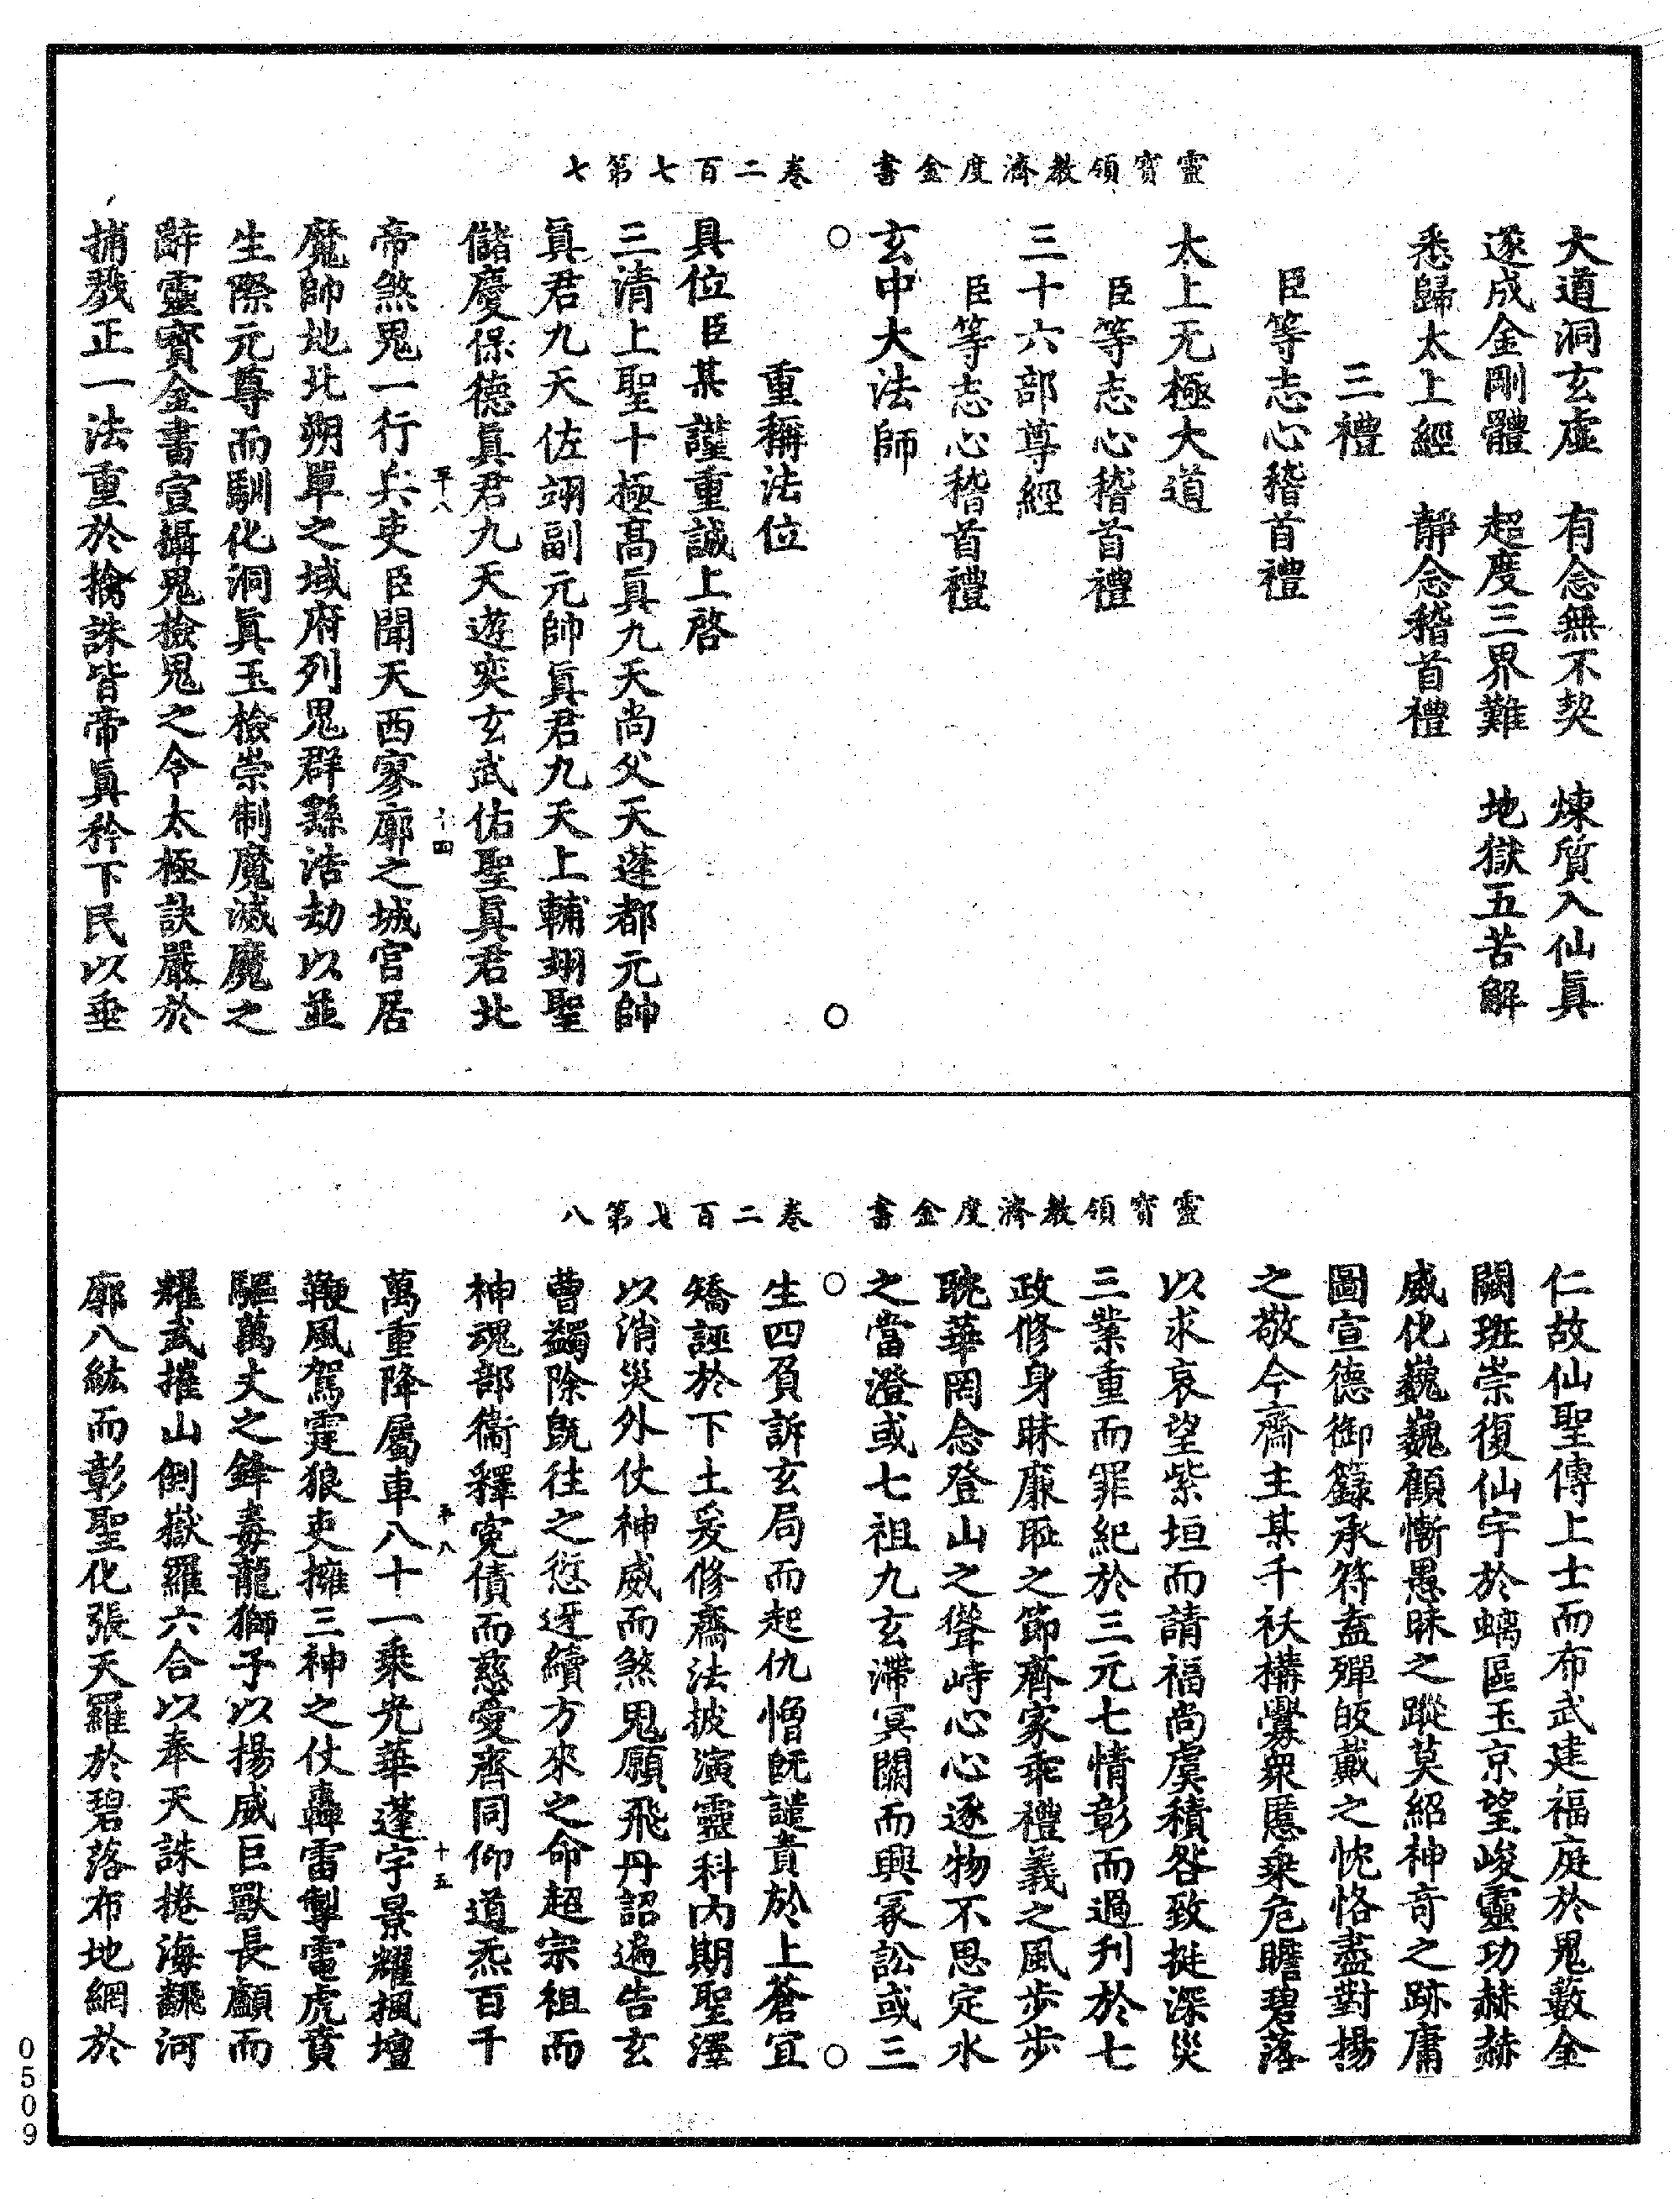 靈寶領教濟度金書　卷二百七第七
大道洞玄虛　有念無不契　煉質入仙眞
遂成金剛體　超度三界難　地獄五苦解
悉歸太上經　靜念稽首禮
三禮
臣等志心稽首禮
太上无極大道
臣等志心稽首禮
三十六部尊經
臣等志心稽首禮
玄中大法師
重稱法位
具位臣某謹重誠上啓
三清上聖十極高眞九天尚父天蓬都元帥
眞君九天佐翊副元帥眞君九天上輔翊聖
儲慶保德眞君九天遊奕玄武佑聖眞君北
帝煞鬼一行兵吏臣聞天西寥廓之城官居
魔帥地北朔單之域府列鬼群繇浩劫以並
生際元尊而馴化洞眞玉檢崇制魔滅魔之
辭靈寶金書宣攝鬼檢鬼之令太極訣嚴於
捕戮正一法重於擒誅皆帝眞矜下民以垂
十四
靈寶領教濟度金書　卷二百七第八
仁故仙聖傳上士而布武建福庭於鬼藪金
闕班崇復仙宇於螭區玉京望峻靈功赫赫
威化巍巍顧慚愚昧之蹤莫紹神奇之跡庸
圖宣德御籙承符盍殫皈戴之忱恪盡對揚
之敬今齋主某千袄構釁衆慝乗危瞻碧落
以求哀望紫垣而請福尚虞積咎致挻深災
三業重而罪紀於三元七情彰而過刋於七
政修身昧廉耻之節齊家乖禮義之風步步
耽華罔念登山之聳峙心心逐物不思定水
之當澄或七祖九玄滯冥關而興冢訟或三
生四負訴玄局而起仇憎旣譴責於上蒼宜
矯誣於下土爰修齋法披演靈科内期聖澤
以消災外仗神威而煞鬼願飛丹詔遍告玄
曹蠲除旣往之愆迓續方來之命超宗祖而
神魂部衞釋寃債而慈愛齊同仰道炁百千
萬重降屬車八十一乘光華蓬宇景耀楓壇
鞭風駕霆狼吏擁三神之仗轟雷掣電虎賁
驅萬丈之鋒毒龍獅子以揚威巨獸長顱而
耀武摧山倒嶽羅六合以奉天誅捲海飜河
廓八紘而彰聖化張天羅於碧落布地網於
十五
0509